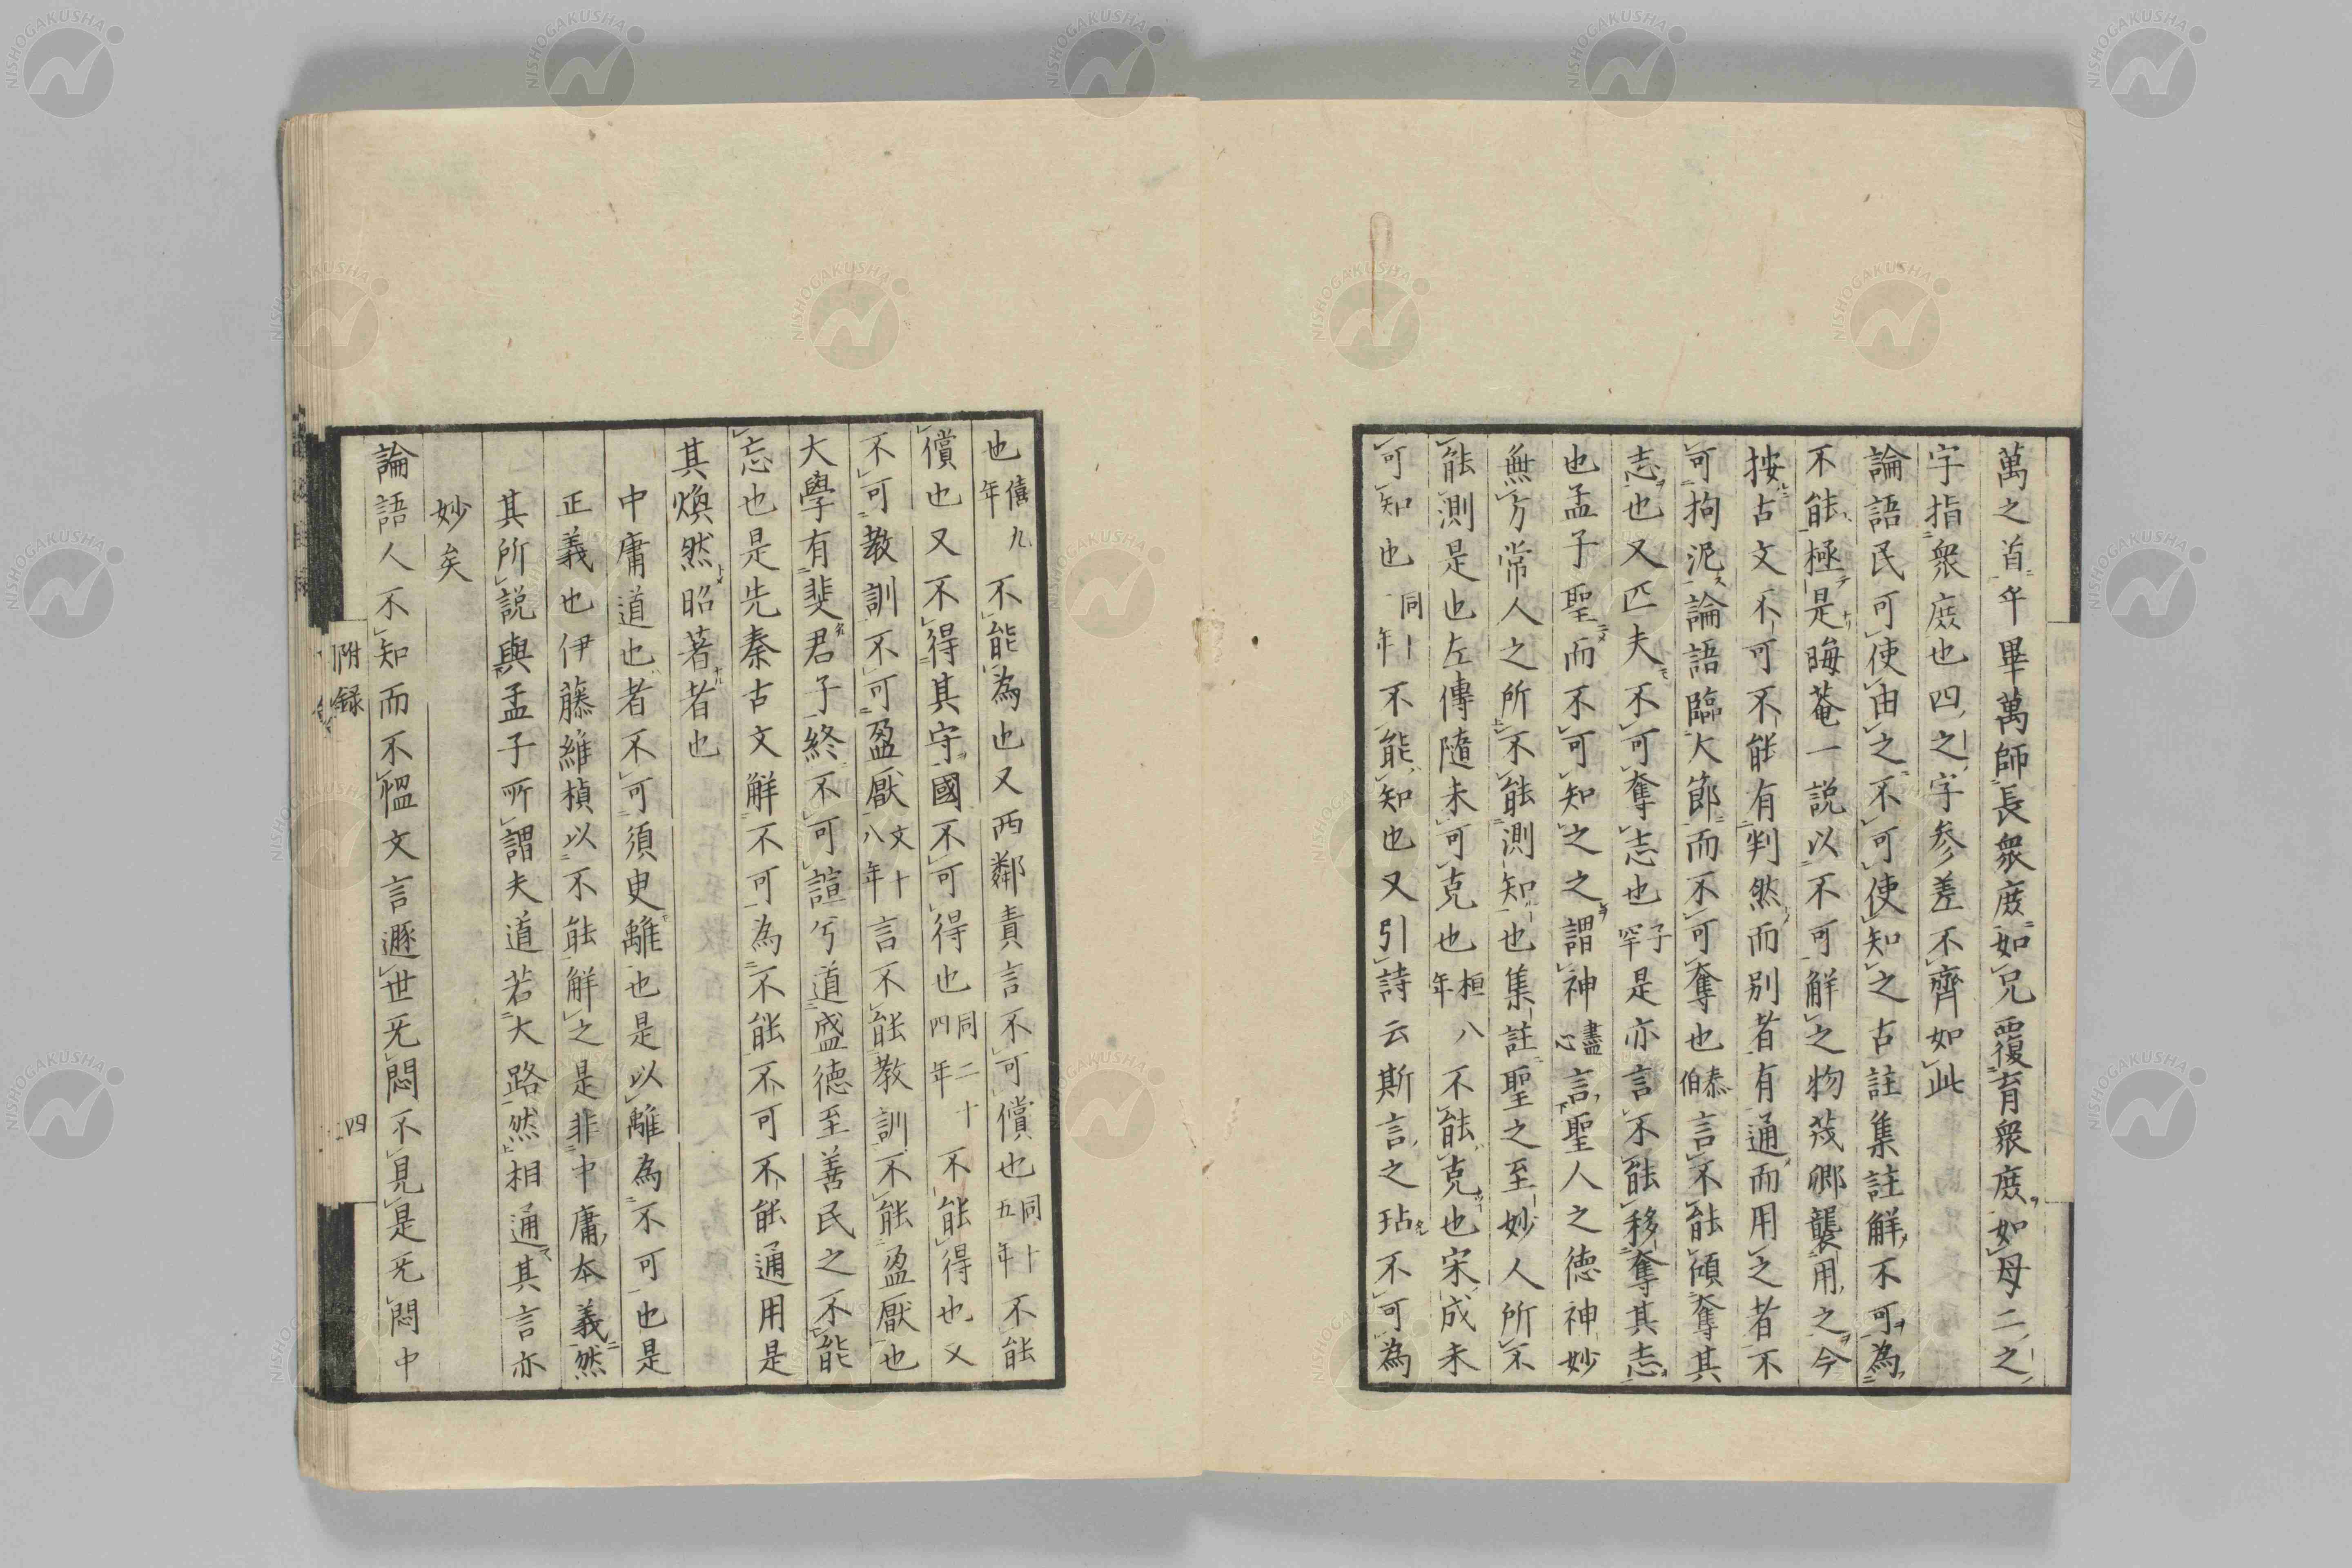 萬之首年畢萬師長衆庶如兄覆育衆庶如母二之
字指衆庶也四之字参差不齊如此
論語民可使由之不可使知之古註集註解不可為
不能極是晦菴一説以不可解之物茂卿襲用之今
按古文不可不能有判然而別者有通而用之者不
可拘泥論語臨大節而不可奪也伯泰言不能傾奪其
志也又匹夫不可奪志也子罕是亦言不能移奪其志
也孟子聖而不可知之之謂神盡心言聖人之徳神妙
無方常人之所不能測知也集註聖之至妙人所不
能測是也左傳隨未可克也桓八年不能克也宋成未
可知也同十年不能知也又引詩云斯言之玷不可為
也僖九年不能為也又西鄰責言不可償也同十五年不能
償也又不得其守國不可得也同二十四年不能得也又
不可教訓不可盈厭文十八年言不能教訓不能盈厭也
大學有斐君子終不可諠兮道盛徳至善民之不能
忘也是先秦古文解不可為不能不可不能通用是
其煥然昭著者也
中庸道也者不可須臾離也是以離為不可也是
正義也伊藤維楨以不能解之是非中庸本義然
其所説與孟子所謂夫道若大路然相通其言亦
妙矣
論語人不知而不慍文言遯世旡悶不見是旡悶中
附録
四